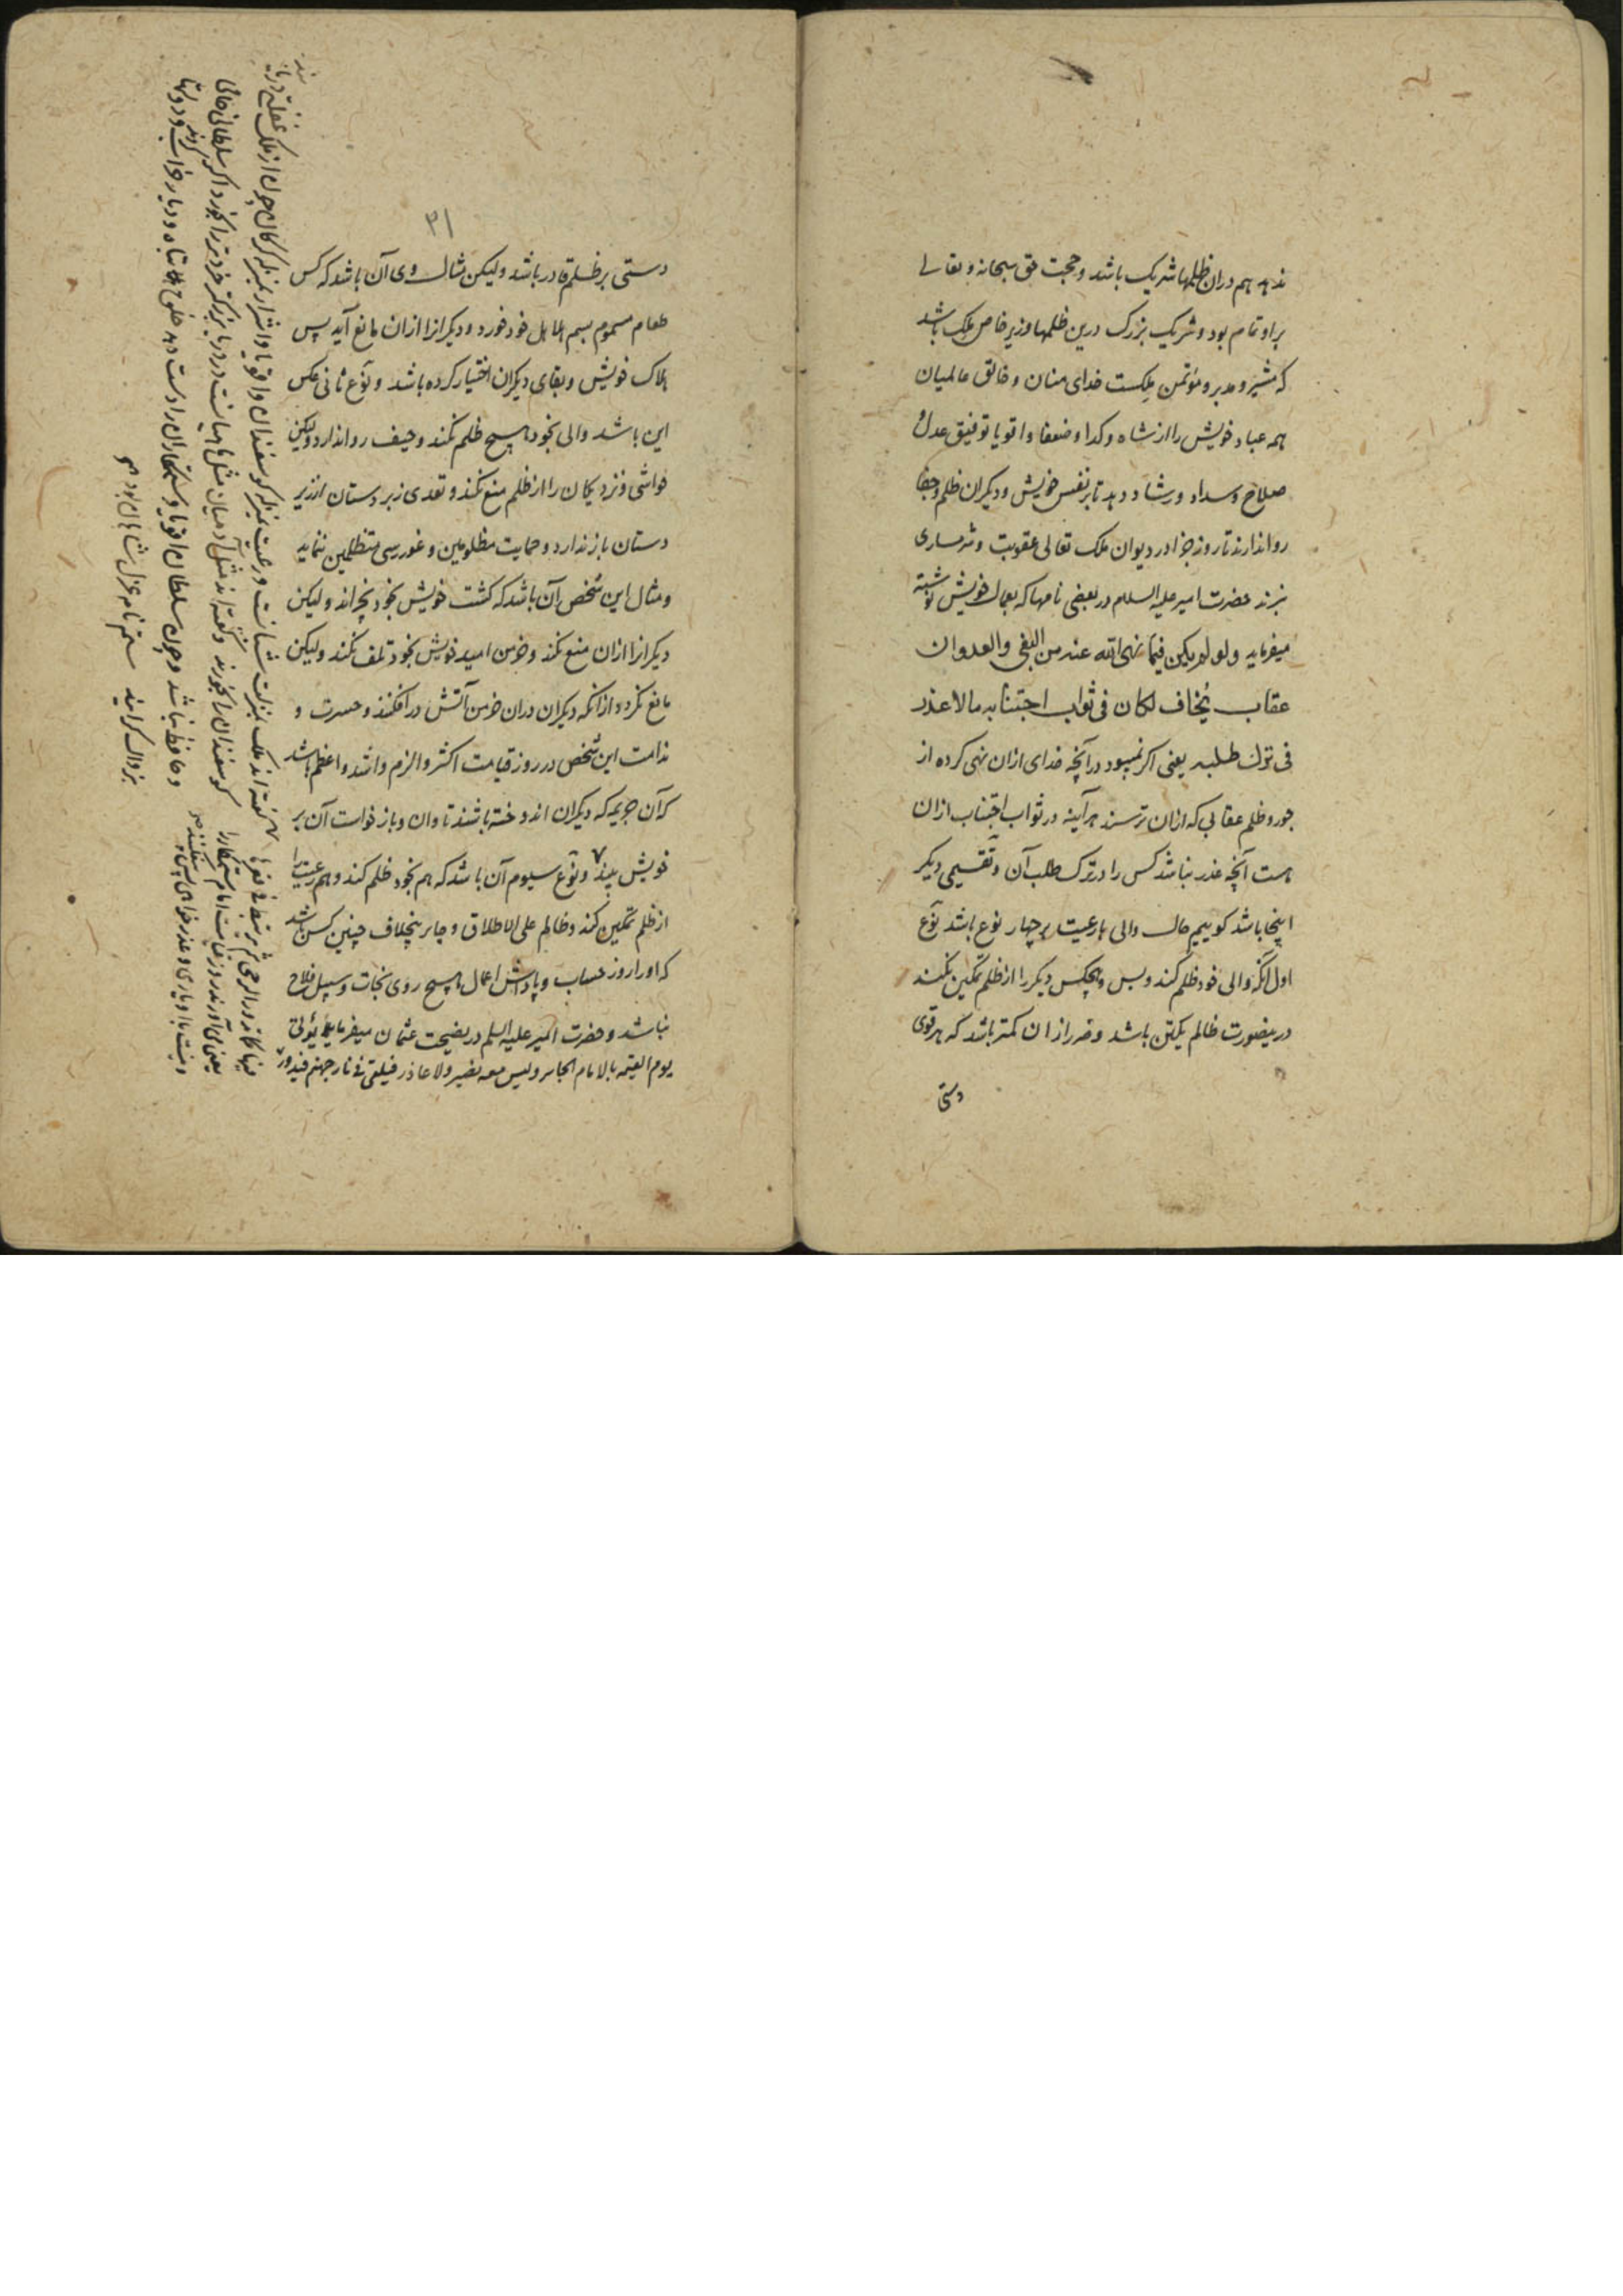 ندهد هم دران ظلمها شریک باشد و حجت حق سبحانه و تعالی
براو تمام بود و شریک بزرک درین ظلمها وزیر خاص ملک باشد
که مشیر و مدبر و مؤتمن ملکست خدای منان و خالق عالمیان
همه عباد خویش را از شاه و کدا و ضعفا و اقویا توفیق عدل و
صلاح و سداد و رشاد دهد تا بر نفس خویش و دیکران ظلم و جفا
روا ندارند تا روز جزا در دیوان ملک تعالی عقوبت و شرمساری
نبرند حضرت امیر علیه السلام در بعضی نامها که بعمال خویش نوشته
میفرماید ولو لم یکن فیما نهی الله عنه من البغی والعدوان
عقاب یُخاف لکان فی ثواب اجتنابه مالا عذر
فی ترك طلبه یعنی اکر نمیبود در آنچه خدای ازان نهی کرده از
جور و ظلم عقابی که ازان ترسند هر آینه در ثواب اجتناب ازان
هست آنچه عذر نباشد کس را در ترک طلب آن و تقسیمی دیکر
اینجا باشد کوییم حال والی با رعیت بر چهار نوع باشد نوع
اول آنکه والی خود ظلم کند و بس و هیچکس دیکر را از ظلم تمکین نکند
درینصورت ظالم یکتن باشد و ضرر ازان کمتر باشد که هر قوی
دستی
۳۱
دستی بر ظلم قادر باشد ولیکن مثال وی آن باشد که کس
طعام مسموم بسم هلاهل خود خورد و دیکرانرا ازان مانع آید پس
هلاک خویش و بقای دیکران اختیار کرده باشد و نوع ثانی عکس
این باشد والی بخود هیچ ظلم نکند و حیف روا ندارد ولیکن
حواشی و نزدیکان را از ظلم منع نکند و تعدی زبردستان از زیر
دستان باز ندارد و حمایت مظلومین و غوررسی متظلمین ننماید
و مثال این شخص آن باشد که کشت خویش بخود نچراند ولیکن
دیکرانرا ازان منع نکند و خرمن امید خویش بخود تلف نکند ولیکن
مانع نکردد ازآنکه دیکران دران خرمن آتش درافکنند و حسرت و
ندامت این شخص در روز قیامت اکثر و الزم و اشد و اعظم باشد
که آن جریمه که دیکران اندوخته باشند تاوان و بازخواست آن بر
خویش بیند و نوع سیوم آن باشد که هم بخود ظلم کند و هم رعیت را
از ظلم تمکین کند و ظالم علی الاطلاق و جابر بیخلاف چنین کس باشد
که اورا روز حساب و پاداش اعمال هیچ روی نجات و سبیل فلاح
نباشد و حضرت امیر علیه السلم در نصیحت عثمان میفرماید یؤتی
یوم القیمه بالامام الجائر ولیس معه نصیر ولا عاذر فیلقی فی نار جهنم فیدور
فیها کما تدور الرحی ثم یرتبط فی قعرها
یعنی می آورند روز قیامت امام ستمکار را
و نیست با او یاری و عذرخواهی پس میافکنند
کفته اند ملک بمنزلت شبانست و رعیت بمنزله کوسفندان و اقویا و اشرار بمنزله کرکان چون از ملک غفلتی دریابند
کوسفندان را بخورند و کفته اند مثل آدمیان مثل ماهیانست در دریا بزرکتر خردتر را بخورد اکر سلطانی حامی
و حافظ نباشد و چون سلطان اقویا و ستمکاران را دست دهد خلق تباه و دیار خراب شود و دولتها
بزوال کراید ستم نامه عزل شاهان بود